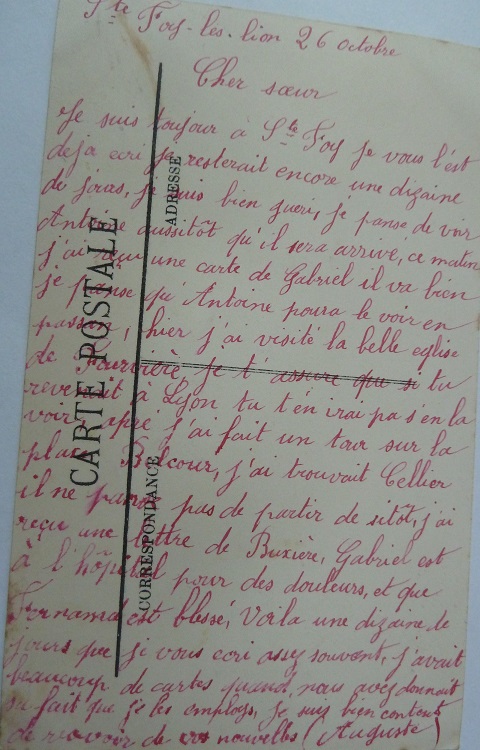 Ste Foy-les-lion 26 octobre
Cher sœur
Je suis toujour a Ste Foy je vous l'est
deja ecri je resterait encore une dizaine
de jours, je suis bien gueri, je panse de voir
Antoine aussitôt qu'il sera arrivé, ce matin
j'ai reçu une carte de Gabriel il va bien
je panse qu'Antoine poura le voir en
passan, hier j'ai visité la belle eglise
de Fourvière je t'assure que si tu
revenait à Lyon tu t'en irai pas s'en la
voir, apré j'ai fait un tour sur la
place Belcour, j'ai trouvait Cellier
il ne panse pas de partir de sitôt, j'ai
reçu une lettre de Buxière, Gabriel est
à l'hôpital pour des douleurs, et que
est blessé, Voila une dizaine de
jours que je vous ecri assez souvent, j'avait
beaucoup de cartes quand nous avez donnait
sa fait que je les employs, je suis bien content
de revoir de vos nouvelles (Auguste)
CARTE POSTALE
ADRESSE
CORRESPONDANCE